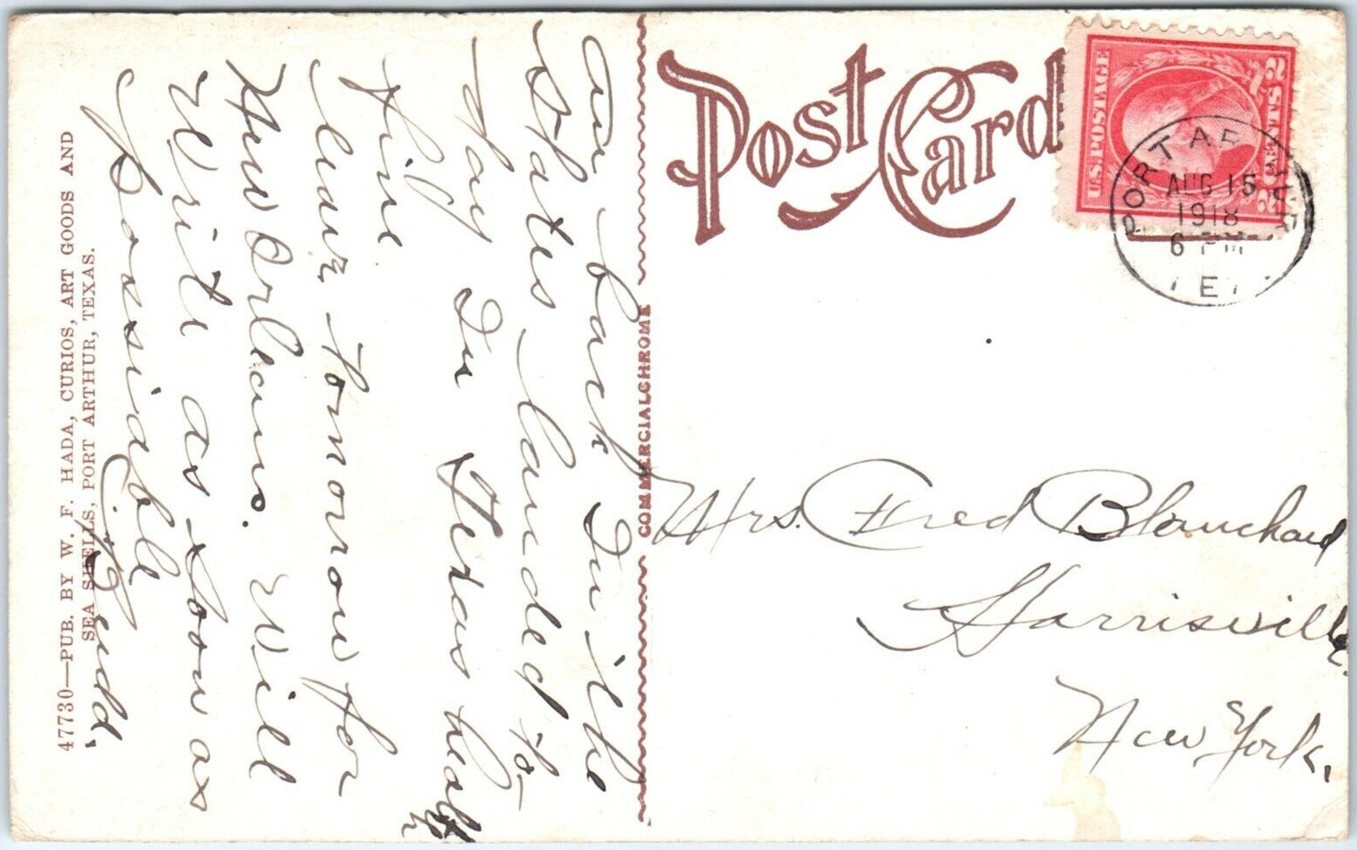 Post Card
U.S. POSTAGE
2 CENTS 2
PORT AR
AUG 15
1918
6 PM
TEX
Am back In the
States landed to-
day In Texas health
fine
leave tomorrow for
New Orleans. Will
Write as soon as
possiable
Budd.
COMMERCIALCHROME
47730—PUB. BY W. F. HADA, CURIOS, ART GOODS AND
SEA SHELLS, PORT ARTHUR, TEXAS.
Mrs. Fred Blanchard
Harrisville
New York.